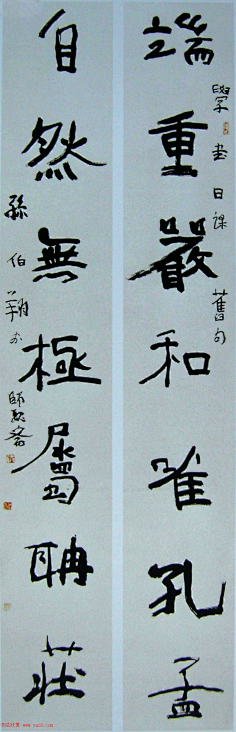 學書日課舊句
端重嚴和唯孔孟
自然無極屬聃莊
孫伯翔